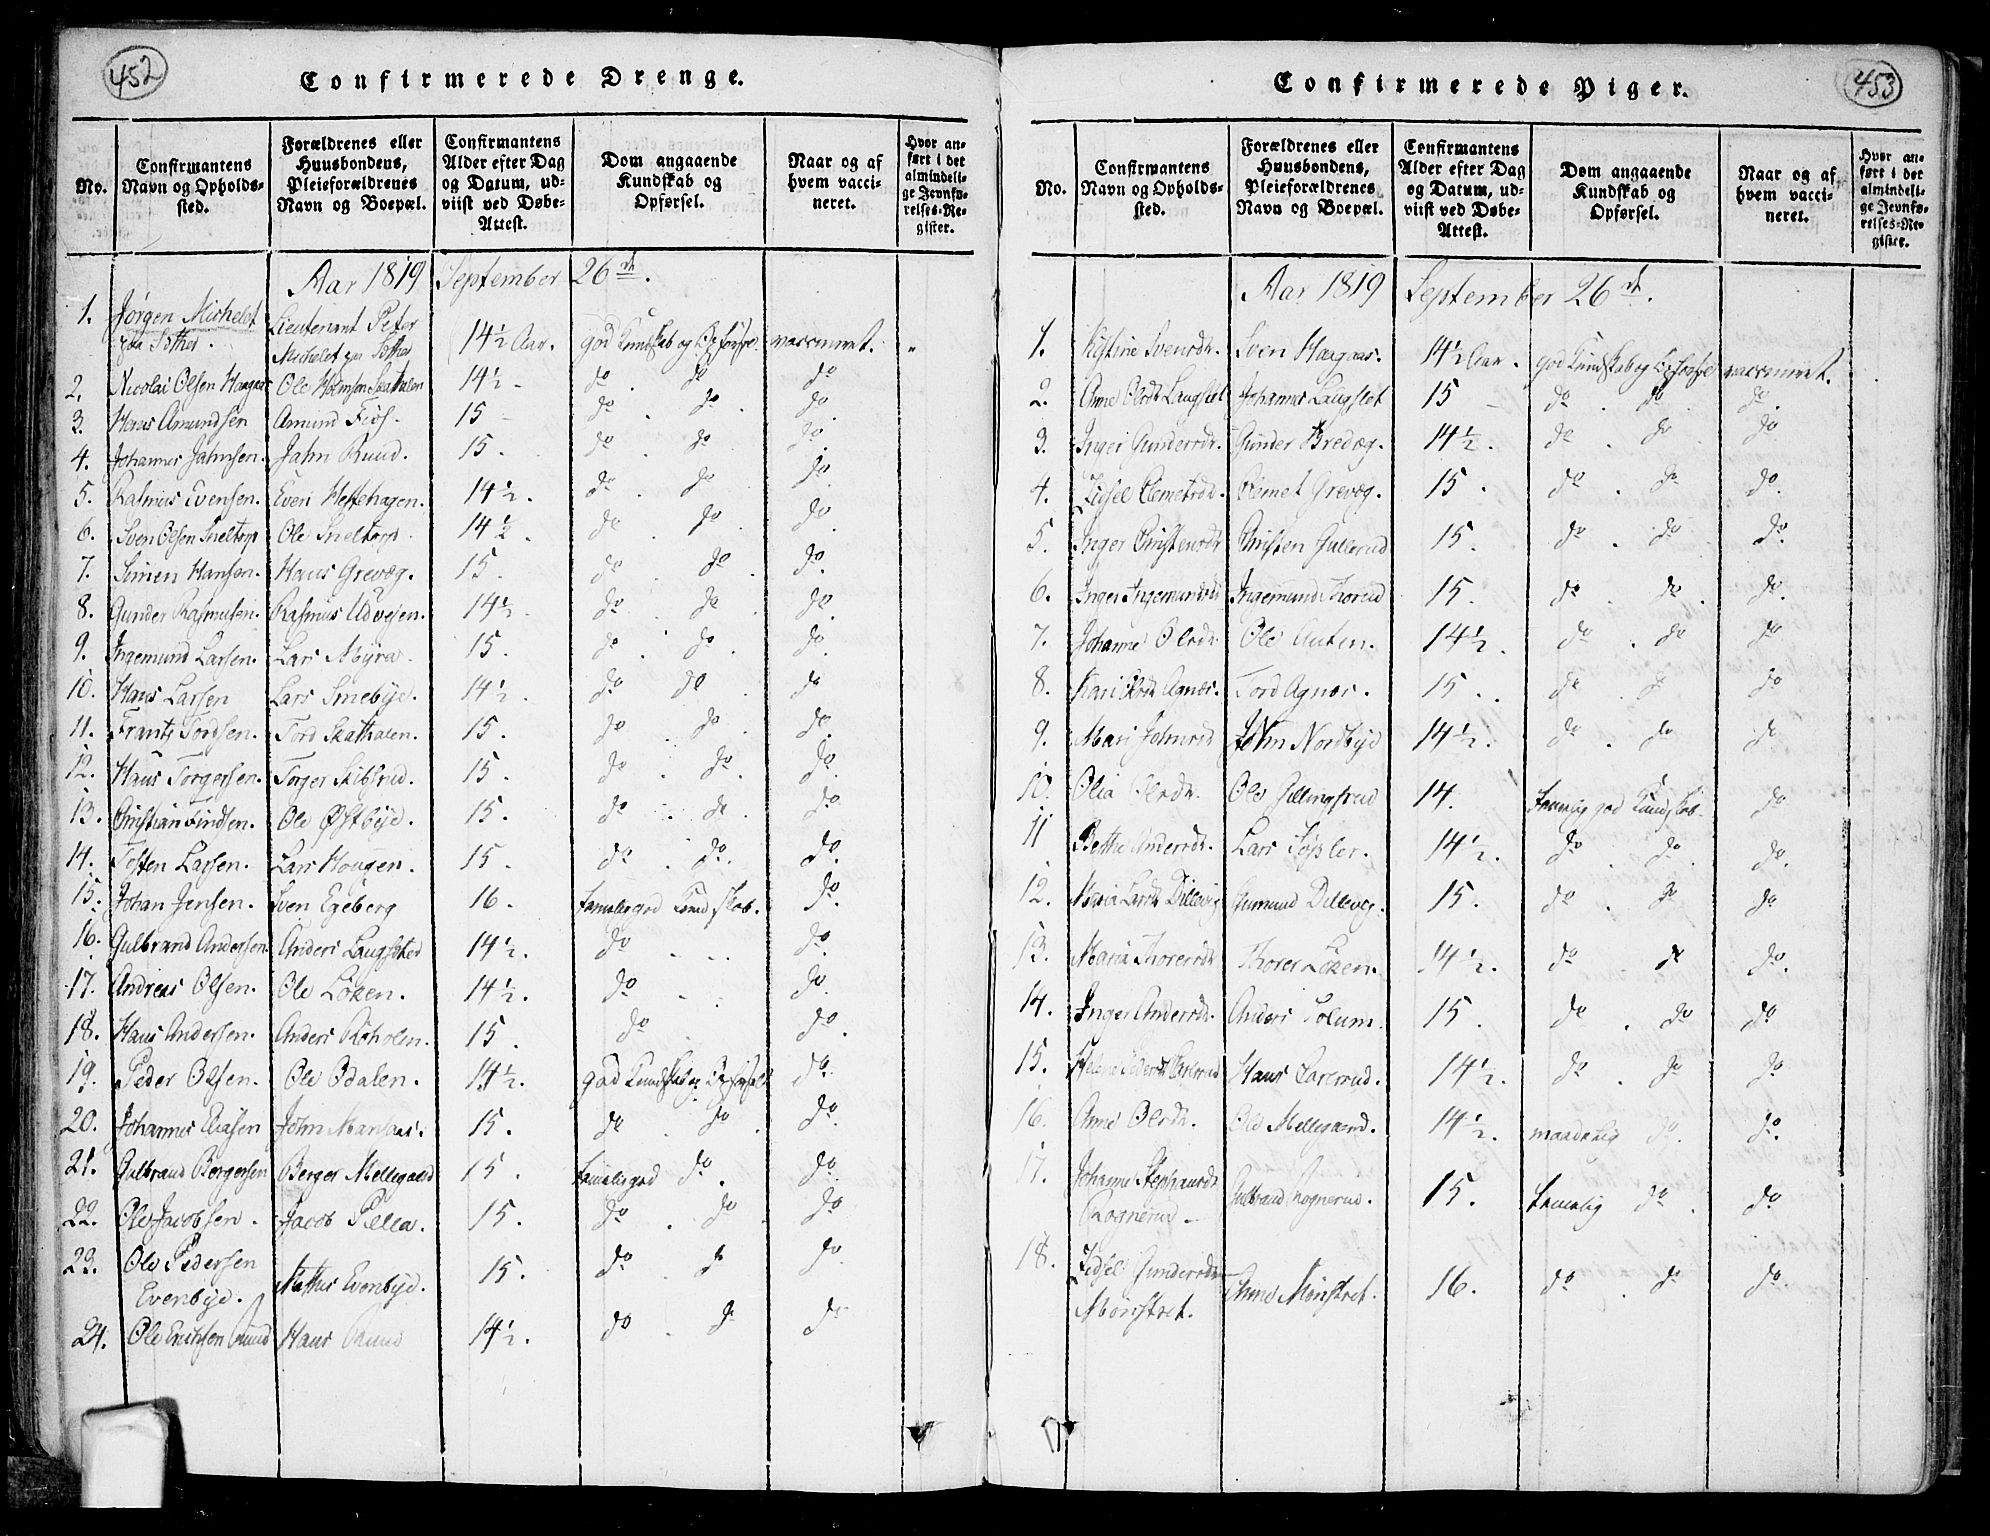 452
Confirmerede Drenge.
No.
Confirmantens Navn og Opholdssted.
Forældrenes eller Huusbondens, Pleieforældrenes Navn og Boepæl.
Confirmantens Alder efter Dag og Datum, udviist ved Døbe-Attest.
Dom angaaende Kundskab og Opførsel.
Naar og af hvem vaccineret.
Hvor anført i det almindelige Jevnførelses-Register.
Aar 1819 September 26de.
1. Jørgen Michelet paa Sother. Lieutenant Peter Michelet paa Sother 14½ Aar. god Kundskab og Opførsel vaccineret. "
2. Nicolai Olsen Haagaas Ole Skathalen 14½ - do. do do
3. Hans Amundsen Amund Fiøs. 15 - do. do. do.
4. Johannes Jahnsen. Jahn Ruud. 15. do. do do.
5. Rasmus Evensen. Even Hestehagen. 14½. do. do. do.
6. Sven Olsen Sneltorp Ole Sneltorp. 14½. do. do. do.
7. Simen Hansen. Hans Grevæg. 15. do. do. do.
8. Gunder Rasmusen. Rasmus Udvesen. 14½. do. do. do.
9. Ingemund Larsen. Lars Myra. 15. do. do. do.
10. Hans Larsen Lars Smebye. 14½. do do. do
11. Frants Tordsen. Tord Skathalen. 15. do. do. do.
12. Hans Torgersen. Torger Skibsrud. 15. do. do. do.
13. Christian Findsen. Ole Østbye. 15. do. do. do.
14. Tosten Larsen. Lars Hougen. 15. do. do. do.
15. Johan Jensen. Sven Egeberg 16. Temelig god Kundskab. do.
16. Gulbrand Andersen Anders Laugsted 14½. do. do.
17. Andreas Olsen. Ole Løken. 14½. do. do.
18. Hans Andersen. Anders Roholen. 15. do. do.
19. Peder Olsen. Ole Odalen. 14½. god Kundskab og Opførsel do.
20. Johannes Eliasen John Mansaas. 15. do. do. do.
21. Gulbrand Bergersen Berger Mellegaard 15. Temelig god do. do.
22. Ole Jacobsen. Jacob Pella. 15. do. do. do
23. Ole Pedersen Evenbye. Evenbye. 15. do. do do.
24. Ole Erichsen Ruud Hans Ruud 14½. do. do do
453
Confirmerede Piger.
No.
Confirmantens Navn og Opholdssted.
Forældrenes eller Huusbondens, Pleieforældrenes Navn og Boepæl.
Confirmantens Alder efter Dag og Datum, udviist ved Døbe-Attest.
Dom angaaende Kundskab og Opførsel.
Naar og af hvem vaccineret.
Hvor anført i det almindelige Jevnførelses-Register.
Aar 1819 September 26de.
1. Kistine Svensdr. Sven Haagaas. 14½ Aar. god Kundskab og Opførsel vaccineret.
2. Anne Olsdr Laugslet Johannes Laugslet 15 - do. do. do.
3. Inger Gundersdr. Gunder Bredæg. 14½. do. do do
4. Zidsel Clemetsdr. Clemet Grevæg. 15. do. do. do.
5. Inger Christensdr Christen Gullerud 15. do. do. do.
6. Inger Ingemundsdr Ingemund Thorud 15. do. do. do.
7. Johanne Olsdr. Ole Auten. 14½. do. do do
8. Kari Agnæs. Tord Agnæs. 15. do. do do
9. Mari Johnsdr John Nordbye 14½. do. do do
10. Olia Olsdr. Ole Gillingsrud 14. Temelig god Kundskab. do
11 Berthe Andersdr. Lars Tøssler. 14½. do. do. do.
12. Maria Larsdr Dillevig Amund Dillevig. 15. do. do do
13. Maria Thorersdr Thorer Løken. 14½. do do do.
14. Inger Andersdr. Anders Solum. 15. do. do do
15. Helene Pedersdr Carlsrud Hans Carlsrud. 14½. do. do do
16. Anne Olsdr. Ole Mellegaard. 14½. maadelig do. do.
17. Johanne Stephansdr Rognerud. Gulbrand Rognerud. 15. Temelig do. do
18. Zidsel Gundersdr Mønstret. Anne Mønstret. 16. do. do do.